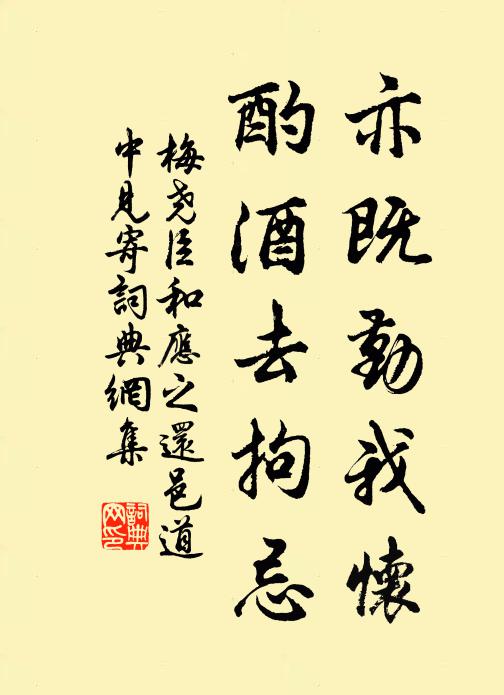 亦既勤我懷
酌酒去拘忌
梅堯臣和應之還邑道
中見寄詞典網集
詞典
网印